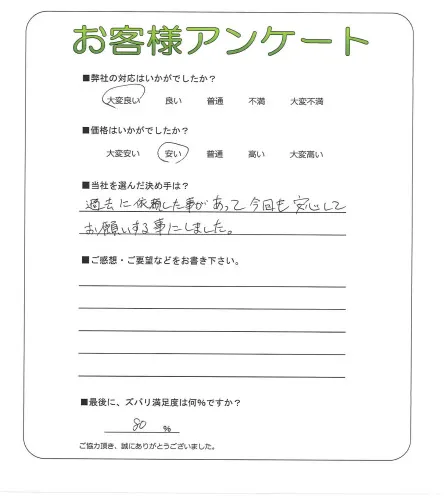 お客様アンケート
■弊社の対応はいかがでしたか？
大変良い 良い 普通 不満 大変不満
■価格はいかがでしたか？
大変安い 安い 普通 高い 大変高い
■当社を選んだ決め手は？
過去に依頼した事があって今回も安心して
お願いする事にしました。
■ご感想・ご要望などをお書き下さい。
■最後に、ズバリ満足度は何％ですか？
80 %
ご協力頂き、誠にありがとうございました。